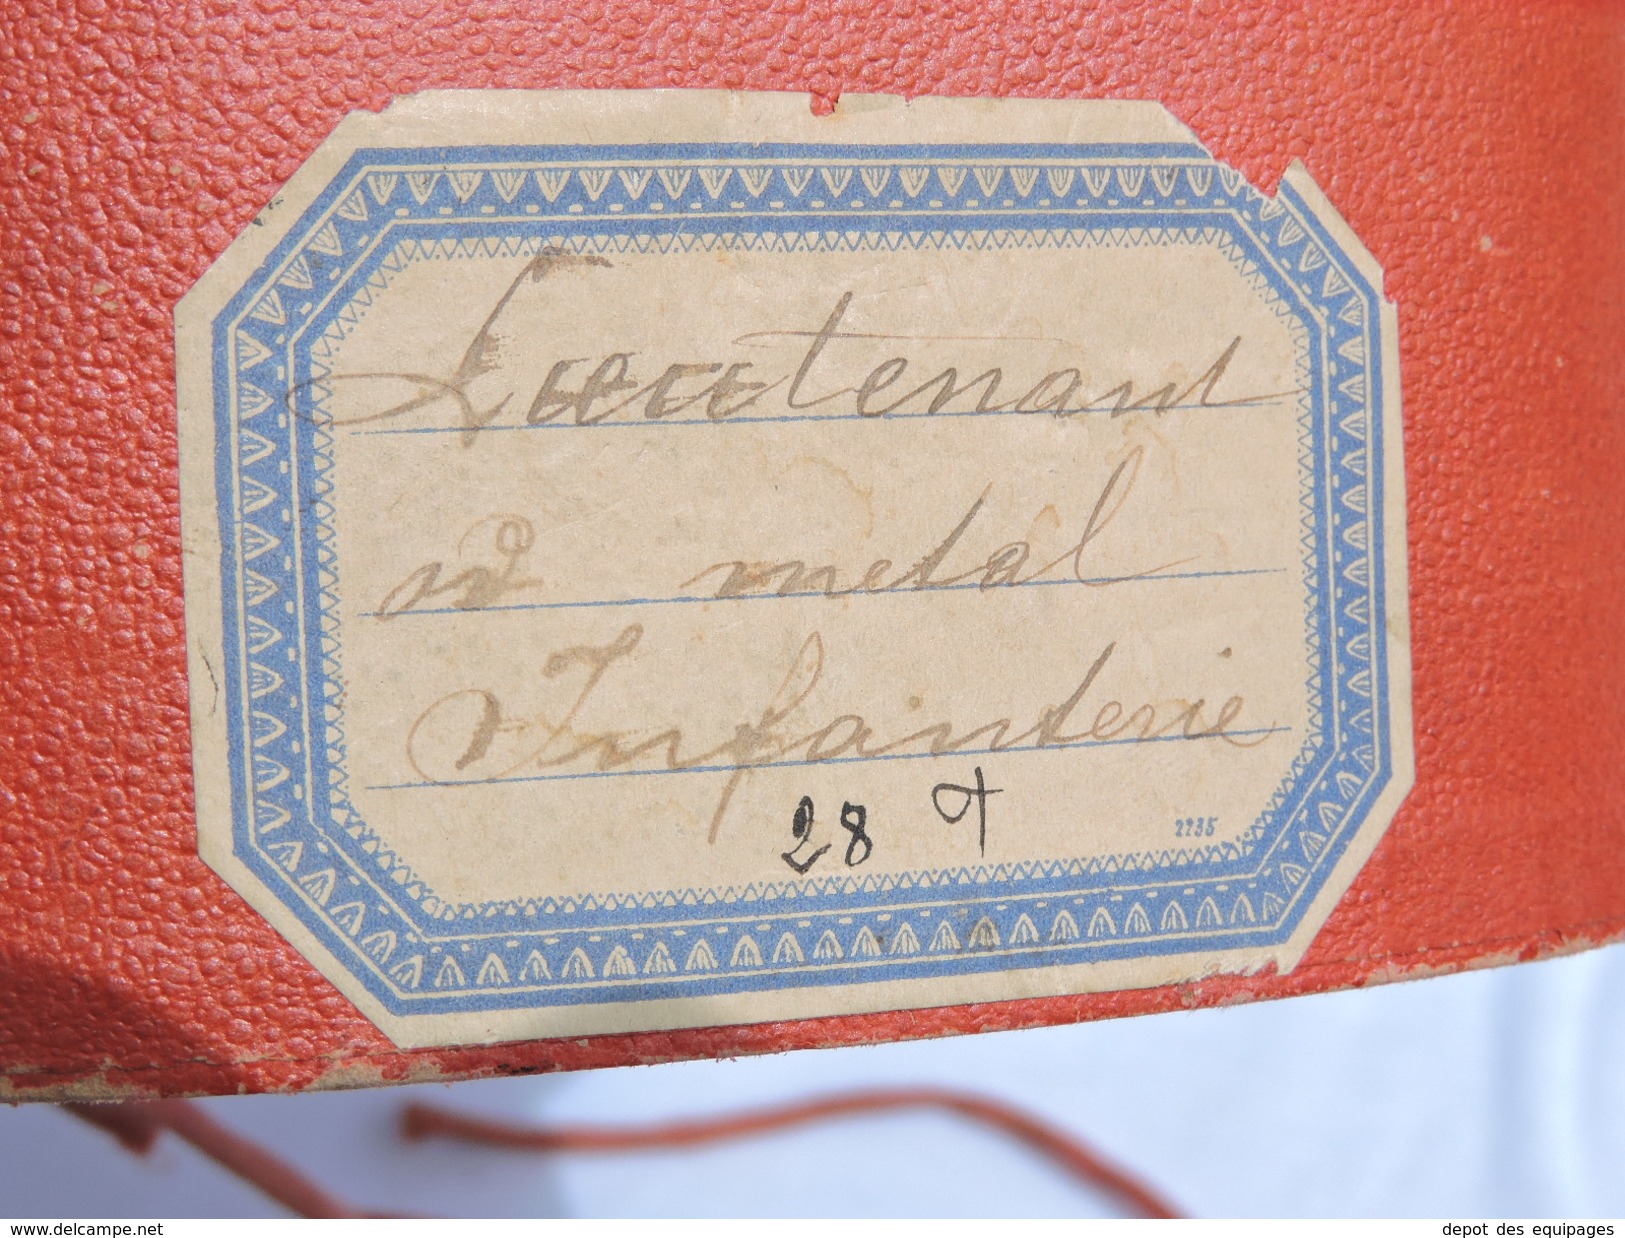 Lieutenant
metal
Infanterie
28
2235
www.delcampe.net
depot des equipages